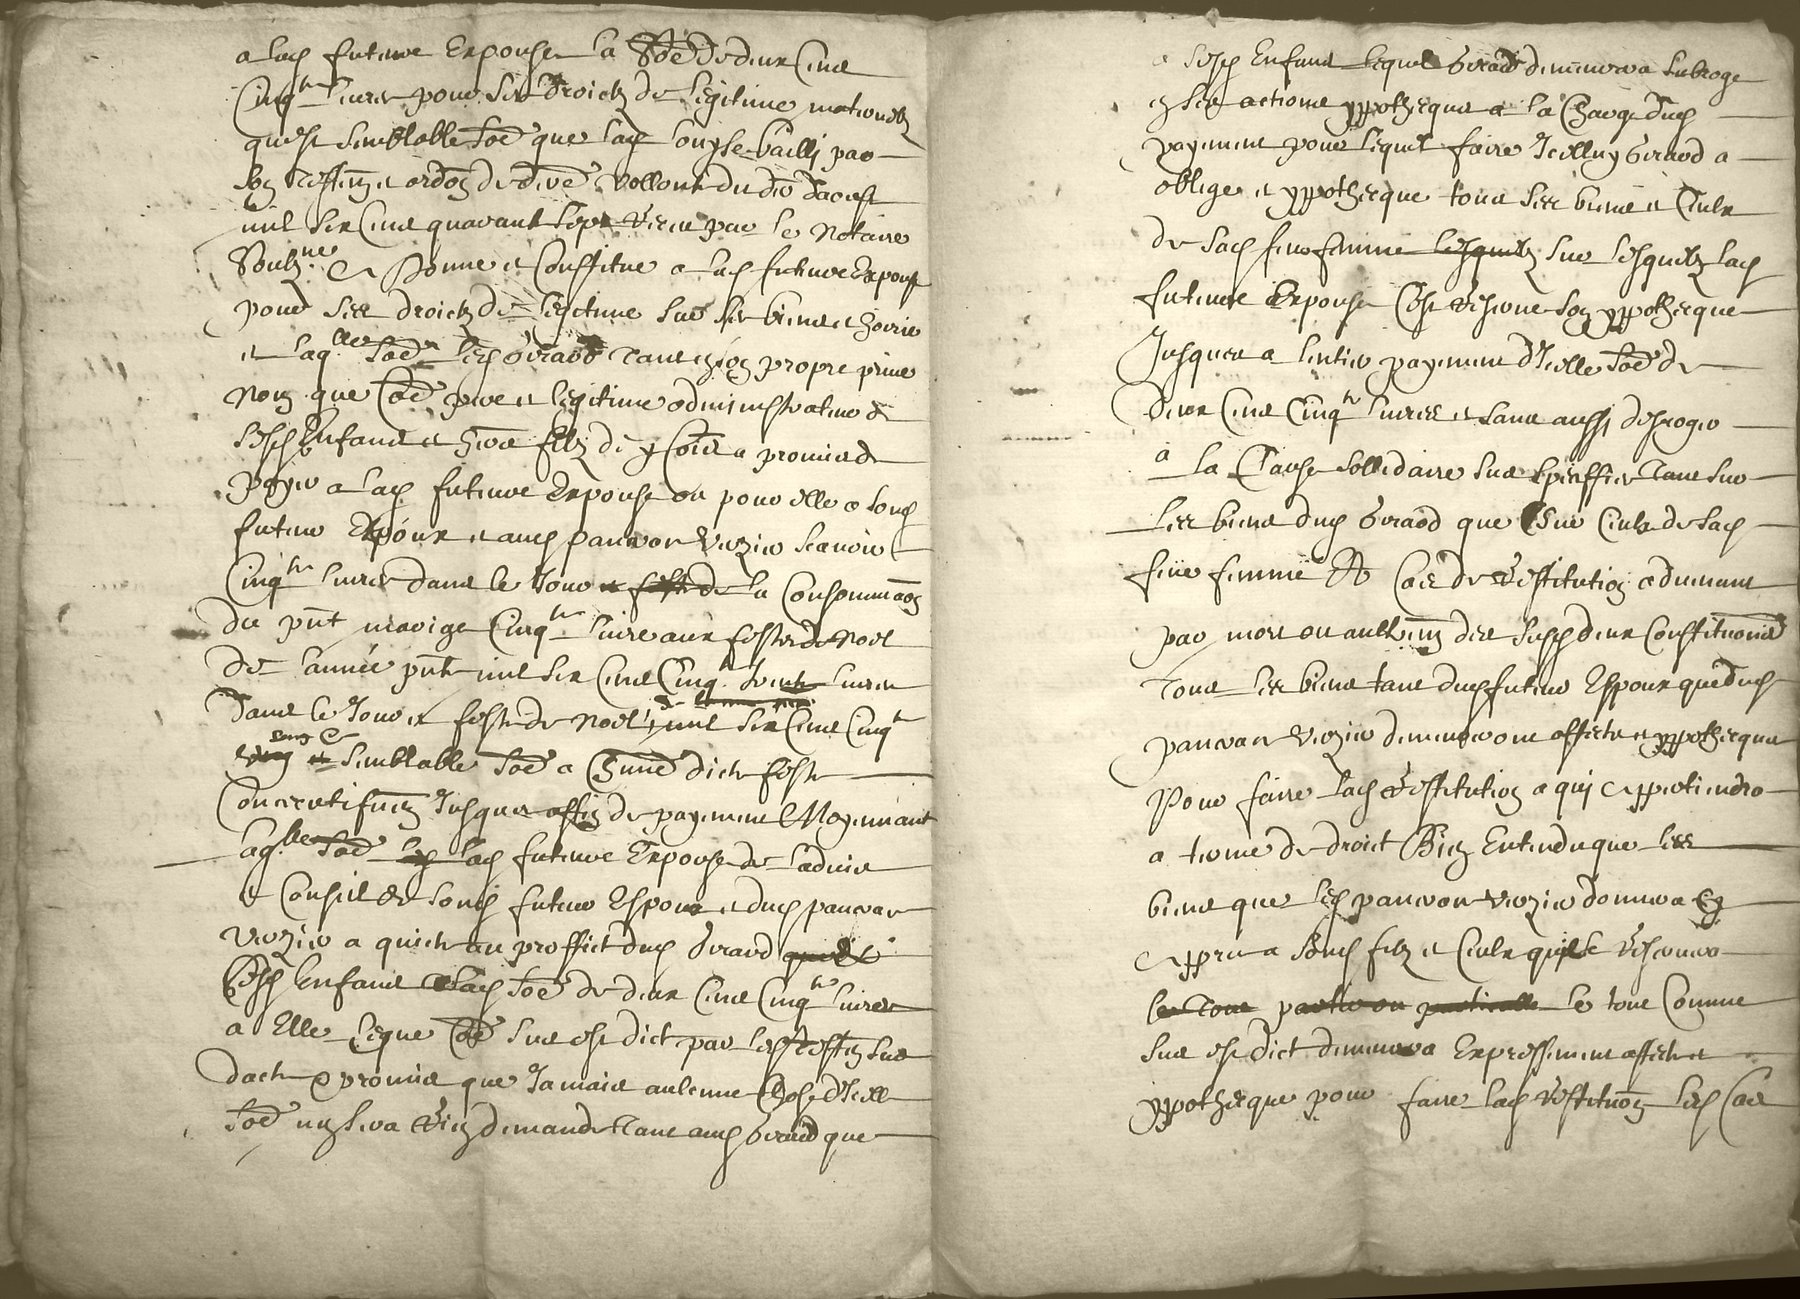 a lad future Espouse la so͞e de deux Cens
Cinqte livres pour ses droictz de legitime maternelz
quest semblable so͞e que lad louyse bailli par
son testemt et ordon de der͞e vollonte du dix daoust
mil six Cens quarante sept receu par le notaire
Soubzne Et donne et Constitue a lad future Espouse
pour ses droictz de legitime sur ses biens et hoirie
et laqlle so͞e led Giraud tant en son propre prive
nom que Co͞e pere et legitime administrateur de
sesd Enfans et de y Co͞is a promis de
payer a lad future Espouse ou pour elle a sond
futur Espoux et aud pancrax verzier scavoir
Cinqte livres dans le Jour et feste de la Consomma͞on
du p͞nt mariage Cinqte livres aux festes de noel
de lannée p͞nte mil six Cens Cinqte livres
Dans le Jour et feste de noel mil six Cens Cinqte
ung Et semblable so͞e a Ch͞une dicte feste
Consecutifvemt Jusques affin de payement Moyennant
laqlle so͞e led lad future Espouse de ladvis
et Conseil de sond futur Espoux et dud pancrax
verzier a quicte au proffict dud Giraud
sesd Enfans Lad so͞e de deux Cens Cinqte livres
a Elle leguee Co͞e sus est dict par lesd testemt sus
datte Et promis que Jamais aulcune Chose dIcelle
so͞e ny sera Rien demande tant aud Giraud que
a sesd Enfans lequel Giraud demeurera subroge
en ses actions ypotheques a la Charge dud
payement pour lequel faire Icelluy Giraud a
oblige et ypotheque tous ses biens et Ceulx
de sad feue femme lesquelz sur lesquelz lad
future Espouse Cest reserve son ypotheque
Jusques a lentier payement dIcelle so͞e de
deux Cens Cinqte livres et sans aussi desroger
a la Clause sollidaire sus speciffiee tant sur
les biens dud Giraud que sur Ceulx de sad
feue femme Et Cas de restitution advenant
par mort ou aultremt des susd deux Constitutions
tous les biens tant dud futur Espoux que dud
pancrax verzier demeureront affectes et ypotheques
pour faire lad restitution a qui Appertiendra
a terme de droict Bien Entendu que les
biens que led pancrax verzier donnera Cy
Appres a sond filz et Ceulx quil se reservera
les tous partie ou particulle le tout Comme
sus est dict demeurera Expressement affecte et
ypotheque pour faire lad restitu͞on led Cas